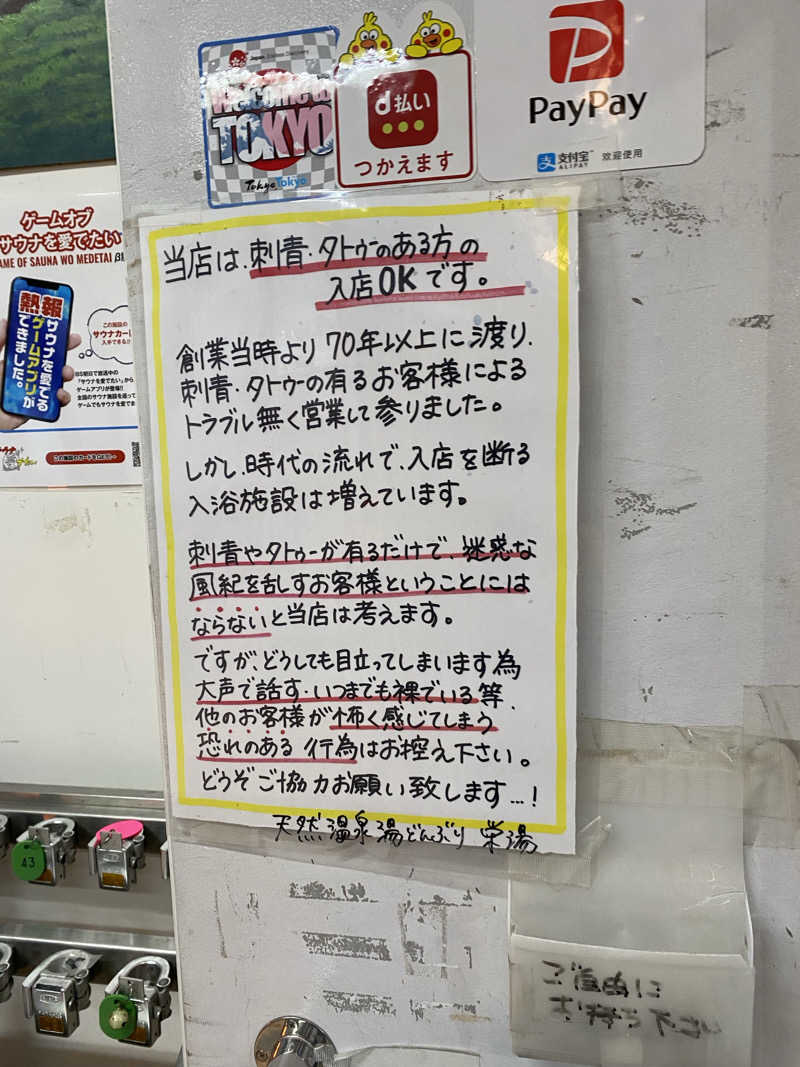 Welcome to
TOKYO
Tokyo Tokyo
d払い
つかえます
PayPay
支付宝
ALIPAY
欢迎使用
ゲームオブ
サウナを愛でたい
AME OF SAUNA WO MEDETAI β版
熱報
サウナを愛でる
ゲームアプリが
できました。
この施設の
サウナカードに
入手できる!!
「サウナを愛でたい」から
ゲームアプリが登場!!
全国のサウナ施設を巡って
ゲームでもサウナを愛でま
当店は、刺青・タトゥーのある方の
入店OKです。
創業当時より70年以上に渡り、
刺青・タトゥーの有るお客様による
トラブル無く営業して参りました。
しかし、時代の流れで、入店を断る
入浴施設は増えています。
刺青やタトゥーが有るだけで、迷惑な
風紀を乱すお客様ということには
ならないと当店は考えます。
ですが、どうしても目立ってしまいます為
大声で話す・いつまでも裸でいる等、
他のお客様が怖く感じてしまう
恐れのある行為はお控え下さい。
どうぞご協力お願い致します…!
天然温泉湯どんぶり 栄湯
43
ご自由に
お持ち下さい